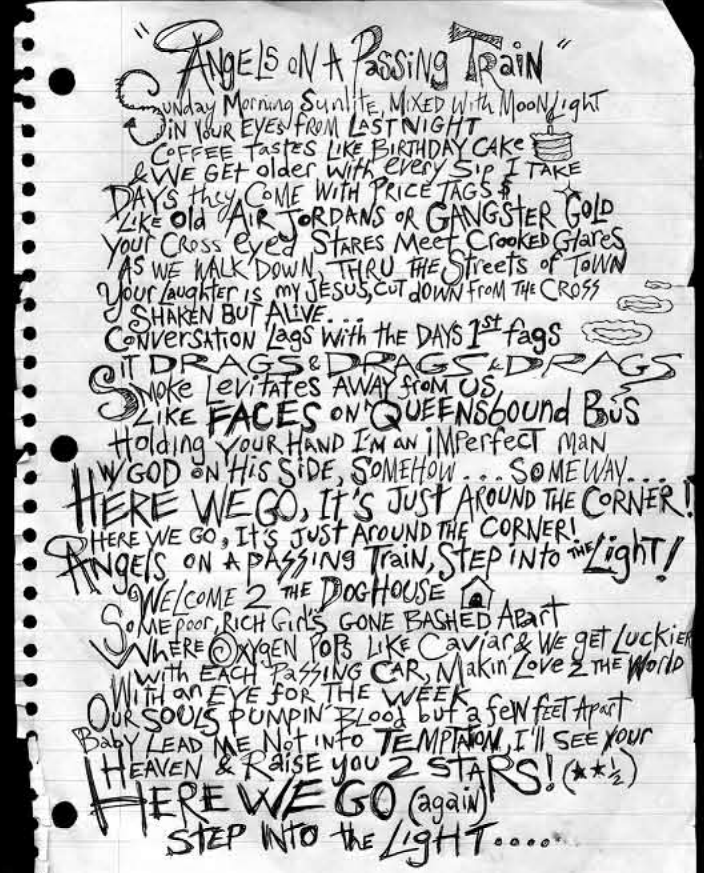 "ANGELS ON A PASSING TRAIN"
SUNDAY MORNING SUNLITE, MIXED WITH MOONLIGHT
IN YOUR EYES FROM LAST NIGHT
COFFEE TASTES LIKE BIRTHDAY CAKE
& WE GET OLDER WITH EVERY SIP I TAKE
DAYS THEY COME WITH PRICE TAGS $
LIKE OLD AIR JORDANS OR GANGSTER GOLD
YOUR CROSS EYED STARES MEET CROOKED GLARES
AS WE WALK DOWN, THRU THE STREETS OF TOWN
YOUR LAUGHTER IS MY JESUS, CUT DOWN FROM THE CROSS
SHAKEN BUT ALIVE...
CONVERSATION LAGS WITH THE DAYS 1st FAGS
IT DRAGS & DRAGS & DRAGS
SMOKE LEVITATES AWAY FROM US
LIKE FACES ON QUEENSBOUND BUS
HOLDING YOUR HAND I'M AN IMPERFECT MAN
W/GOD ON HIS SIDE, SOMEHOW... SOMEWAY...
HERE WE GO, IT'S JUST AROUND THE CORNER!
HERE WE GO, IT'S JUST AROUND THE CORNER!
ANGELS ON A PASSING TRAIN, STEP INTO THE LIGHT!
WELCOME 2 THE DOGHOUSE
SOME POOR, RICH GIRL'S GONE BASHED APART
WHERE OXYGEN POPS LIKE CAVIAR & WE GET LUCKIER
WITH EACH PASSING CAR, MAKIN' LOVE 2 THE WORLD
WITH AN EYE FOR THE WEEK
OUR SOULS PUMPIN' BLOOD BUT A FEW FEET APART
BABY LEAD ME NOT INTO TEMPTAION, I'LL SEE YOUR
HEAVEN & RAISE YOU 2 STARS! (★★½)
HERE WE GO (again)
STEP INTO THE LIGHT....